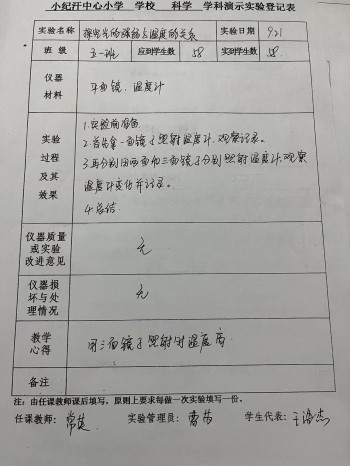 小纪汗中心小学 学校 科学 学科演示实验登记表
实验名称 探究光的强弱与温度的关系 实验日期 9.21
班级 五一班 应到学生数 58 实到学生数 58
仪器
材料
平面镜、温度计
实验
过程
及其
效果
1.实验前准备
2.首先拿一面镜子照射温度计,观察记录。
3.再分别用两面和三面镜子分别照射温度计,观察
温度计变化并记录。
4.总结
仪器质量
或实验
改进意见
无
仪器损
坏与处
理情况
无
教学
心得
用三面镜子照射时温度高
备注
注:由任课教师课后填写,原则上要求每做一次实验填写一份。
任课教师: 常 实验管理员: 曹 学生代表: 王浩杰